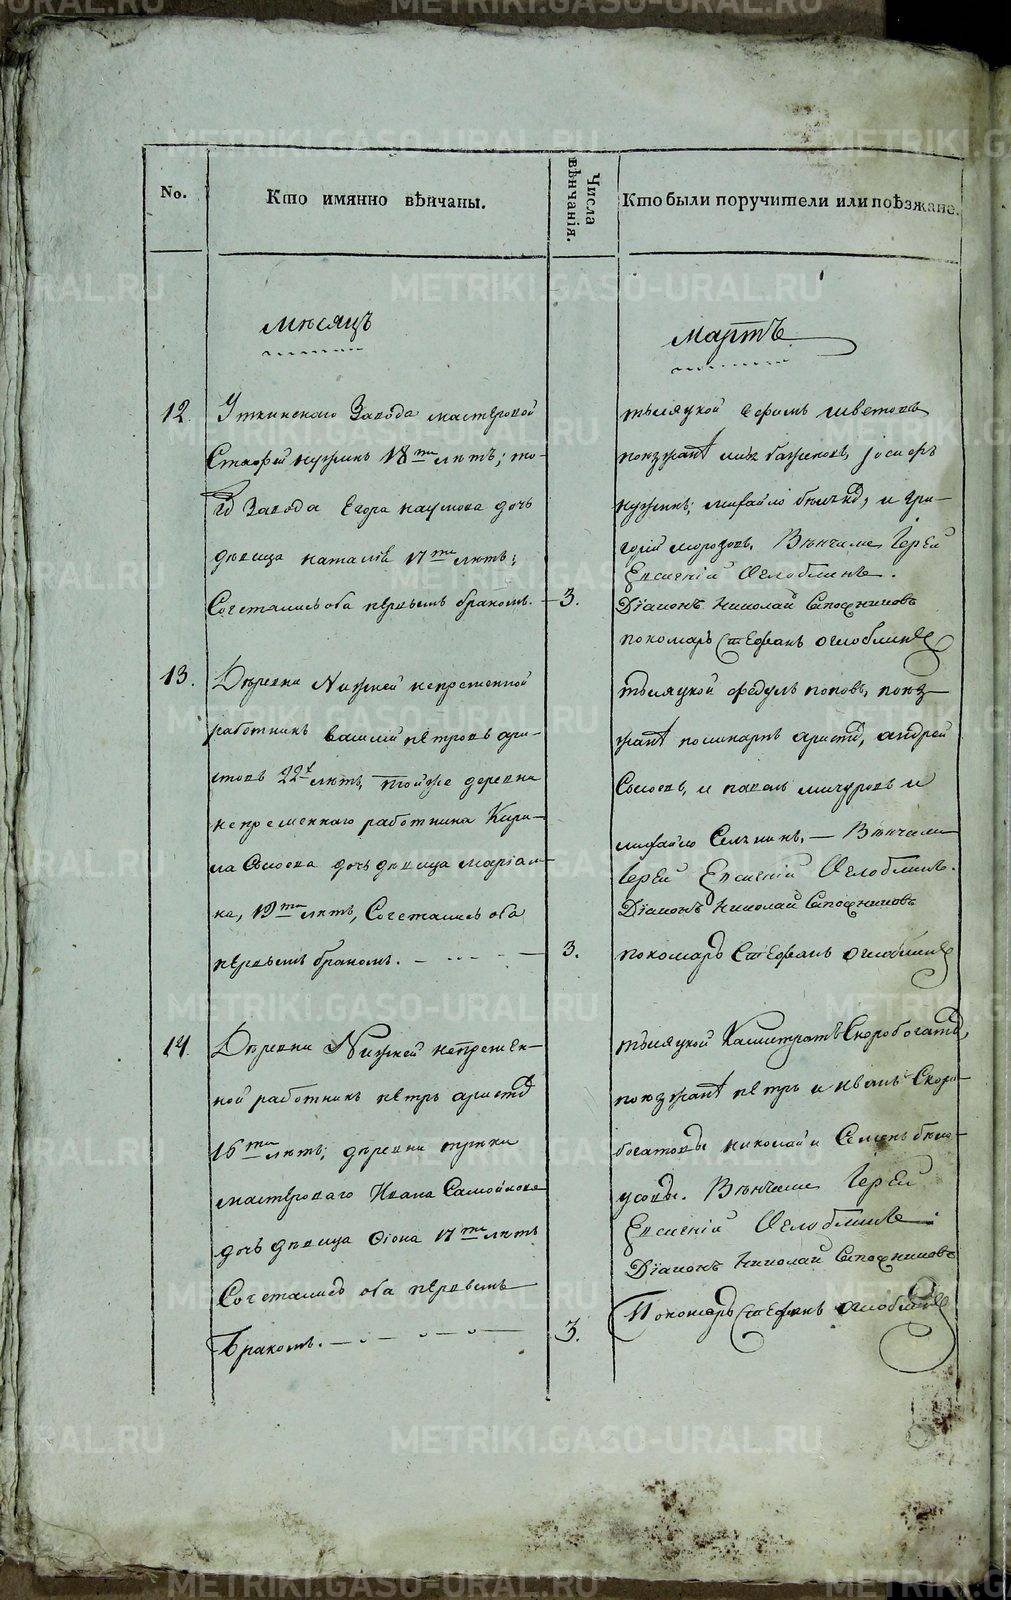 No.
Кто имянно вѣнчаны.
Числа вѣнчанія.
Кто были поручители или поѣзжане.
мѣсяцъ
мартъ
12.
Уткинскаго Завода мастеровой
18ти лѣтъ; то-
Завода Егора наумова дочь
дѣвица наталія 17ти лѣтъ;
Сочетались оба первымъ бракомъ.
3.
тысяцкой
поѣзжанѣ
михайло и гри-
горій морозовъ. Вѣнчали Іерей
Евсигній Оглоблинъ.
Діаконъ Николай Сапожниковъ
пономарь Стефанъ оглоблинъ
13.
Деревни Нижней непременной
работникъ василій петровъ ари-
стовъ 22х лѣтъ, тойже деревни
непременнаго работника Кири-
ла Сысоева дочь дѣвица маріам-
на, 19ти лѣтъ, Сочетались оба
первымъ бракомъ.
3.
тысяцкой федулъ поповъ, поѣз-
жанѣ поликарпъ аристовъ, андрей
Сысоевъ, и павелъ мичуровъ и
михайло Вѣнчали
Іерей Евсигній Оглоблинъ.
Діаконъ Николай Сапожниковъ
пономарь Стефанъ оглоблинъ
14.
Деревни Нижней непремен-
ной работникъ петръ аристовъ
16ти лѣтъ; деревни
мастероваго Ивана Самойлова
дочь дѣвица Фіона 17ти лѣтъ
Сочетались оба первымъ
бракомъ.
3.
тысяцкой Калистратъ Скоробогатовъ,
поѣзжанѣ петръ и иванъ Скоро-
богатовы николай и Семенъ бѣло-
усовы. Вѣнчали Іерей
Евсигній Оглоблинъ.
Діаконъ Николай Сапожниковъ
Пономарь Стефанъ оглоблинъ
METRIKI.GASO-URAL.RU